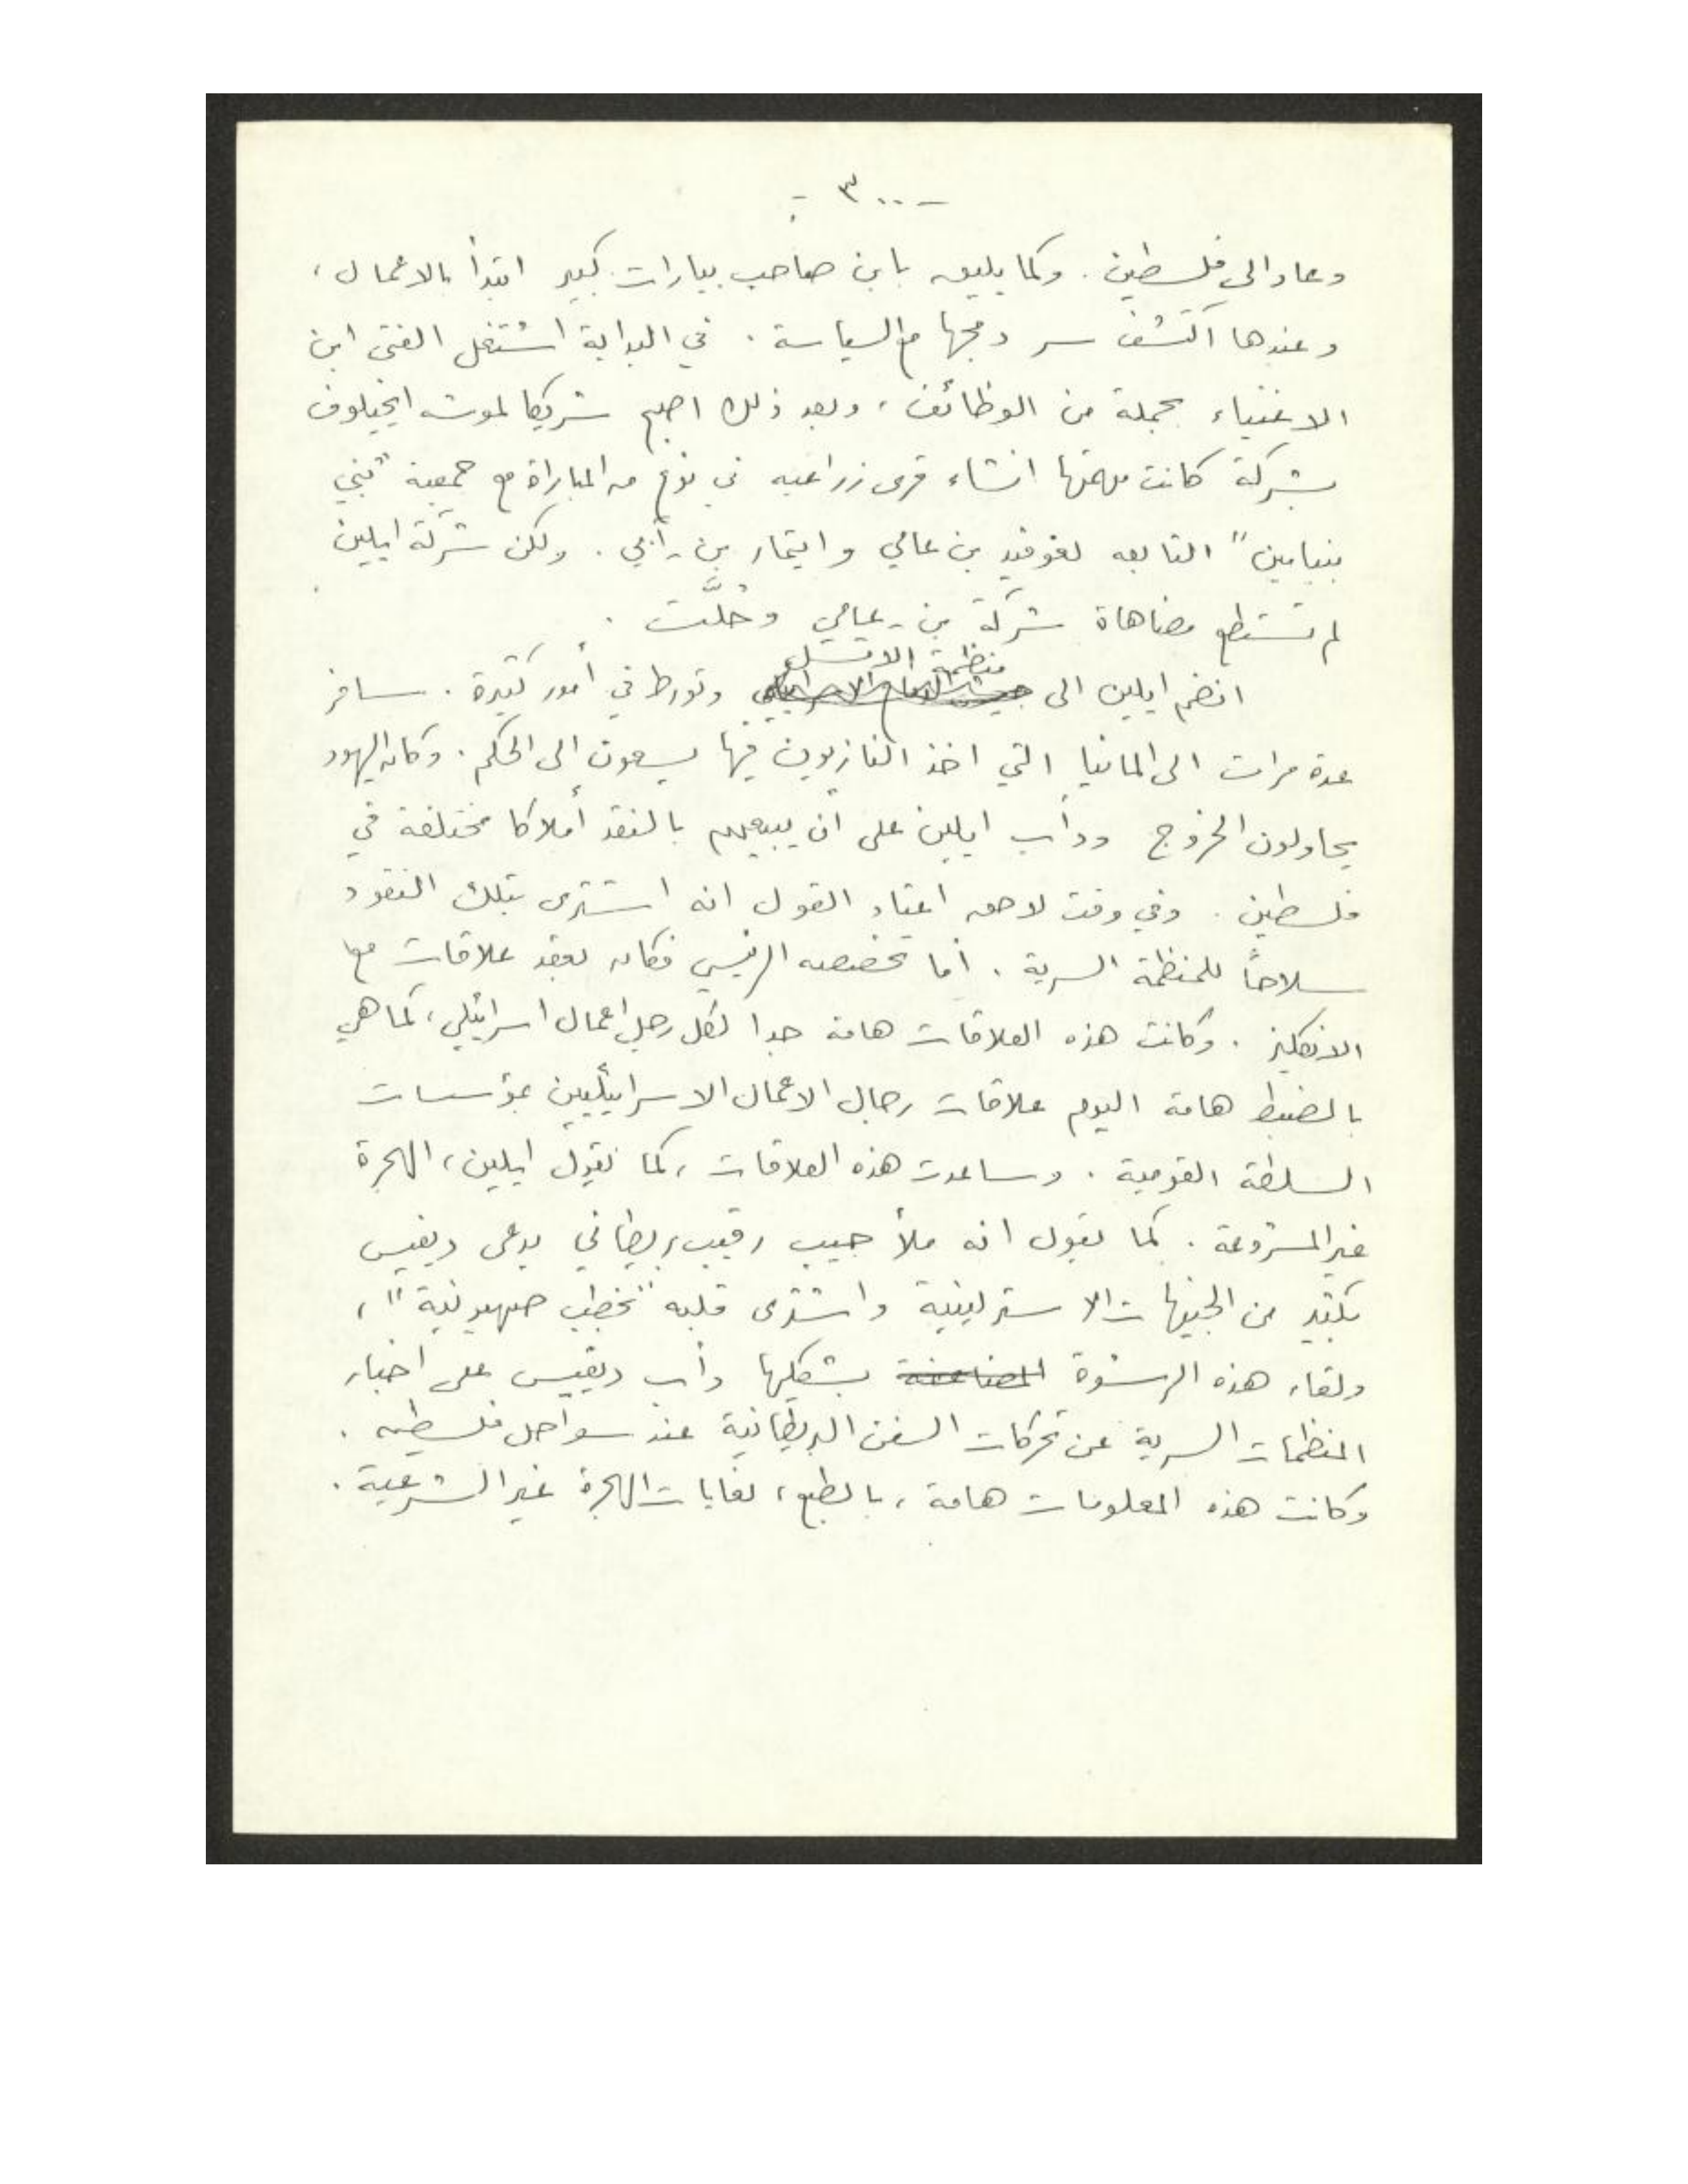 - ٣٠٠ -
وعاد الى فلسطين . وكما يليق بابن صاحب بيارات كبير ابتدأ بالاعمال ،
وعندها اكتشف سر دمجها مع السياسة . في البداية اشتغل الفتى ابن
الاغنياء بجملة من الوظائف ، وبعد ذلك اصبح شريكا لموشه ايخيلوف
بشركة كانت مهمتها انشاء قرى زراعيه في نوع من المباراة مع جمعية "بني
بنيامين" التابعه لعوفيد بن عامي وايتمار بن-آبي . ولكن شركة ايلين
لم تستطع مضاهاة شركة بن-عامي وحُلَّت .
انضم ايلين الى منظمة الاتسل وتورط في أمور كثيرة . سافر
عدة مرات الى المانيا التي اخذ النازيون فيها يسعون الى الحكم . وكان اليهود
يحاولون الخروج ودأب ايلين على أن يبيعهم بالنقد أملاكا مختلفة في
فلسطين . وفي وقت لاحق اعتاد القول انه اشترى بتلك النقود
سلاحاً للمنظمة السرية . أما تخصصه الرئيسي فكان لعقد علاقات مع
الانكليز . وكانت هذه العلاقات هامة جدا لكل رجل اعمال اسرائيلي ، كما هي
بالضبط هامة اليوم علاقات رجال الاعمال الاسرائيليين بمؤسسات
السلطة القومية . وساعدت هذه العلاقات ، كما يقول ايلين ، الهجرة
غير المشروعة . كما يقول انه ملأ جيب رقيب بريطاني يدعى ديفيس
بكثير من الجنيهات الاسترلينية واشترى قلبه "بخطب صهيونية" ،
ولقاء هذه الرشوة بشكليها دأب ديفيس على اخبار
المنظمات السرية عن تحركات السفن البريطانية عند سواحل فلسطين .
وكانت هذه المعلومات هامة ، بالطبع ، لغايات الهجرة غير الشرعية .